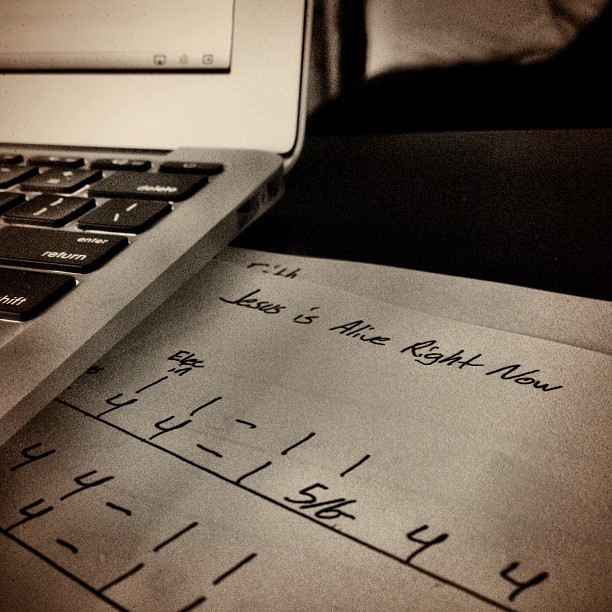 delete
enter
return
shift
Jesus is Alive Right Now
Elec
in
1 1 - 1 1
4 4 - 1 5/6 4 4
4 4 - 1 1
4 - 1 1